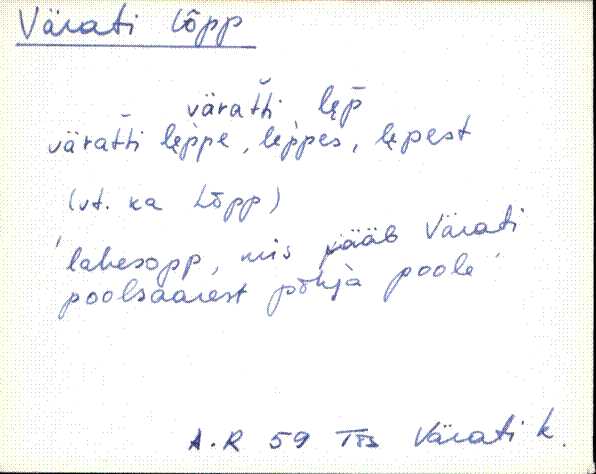 Värati Lõpp
väratti lęp̄
väratti lęppe, lęppes, lępest
(vt. ka Lõpp)
'lahesopp, mis jääb Värati
poolsaarest põhja poole'
A.R 59 Trs Värati k.